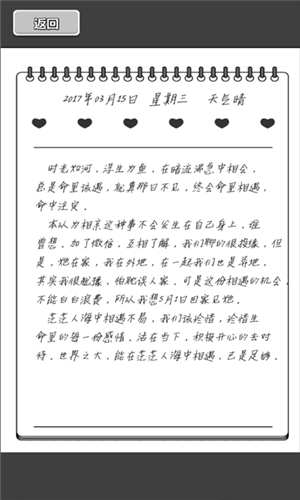 返回
2017年03月15日 星期三 天气晴
时光如河，浮生为鱼，在暗流湍急中相会，
总是命里该遇，就算即日不见，终会命里相遇，
命中注定。
本以为相亲这种事不会发生在自己身上，谁
曾想，加了微信，互相了解，我们聊的很投缘。但
是，她在家，我在外地，在一起我们也是异地，
其实我很犹豫，怕耽误人家，可是这份相遇的机会
不能白白浪费，所以我想5月1日回家见她。
茫茫人海中相遇不易，我们该珍惜，珍惜生
命里的每一份感情，活在当下，积极开心的去对
待，世界之大，能在茫茫人海中相遇，已是足够。